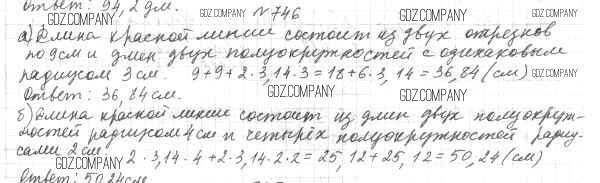 Ответ: 94,2 дм.
GDZ.COMPANY N 746 GDZ.COMPANY
а) Длина красной линии состоит из двух отрезков
по 9 см и длин двух полуокружностей с одинаковым
GDZ.COMPANY
радиусом 3 см. 9+9+2·3,14·3=18+6·3,14=36,84 (см)
GDZ.COMPANY
Ответ: 36,84 см.
GDZ.COMPANY
б) Длина красной линии состоит из длин двух полуокруж-
ностей радиусом 4 см и четырёх полуокружностей радиу-
сами 2 см
GDZ.COMPANY GDZ.COMPANY
2·3,14·4+2·3,14·2·2=25,12+25,12=50,24 (см)
Ответ: 50,24 см